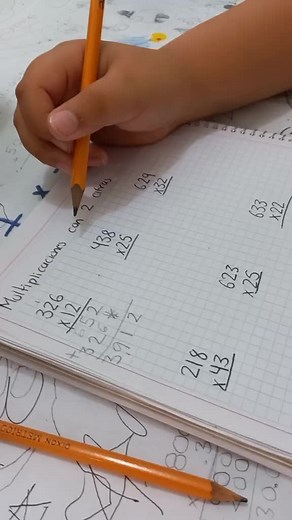 Multiplicaciones con 2 cifras
326
x12
652
+326*
3,912
438
x25
629
x32
218
x43
623
x25
633
x22
DIXON METRICO